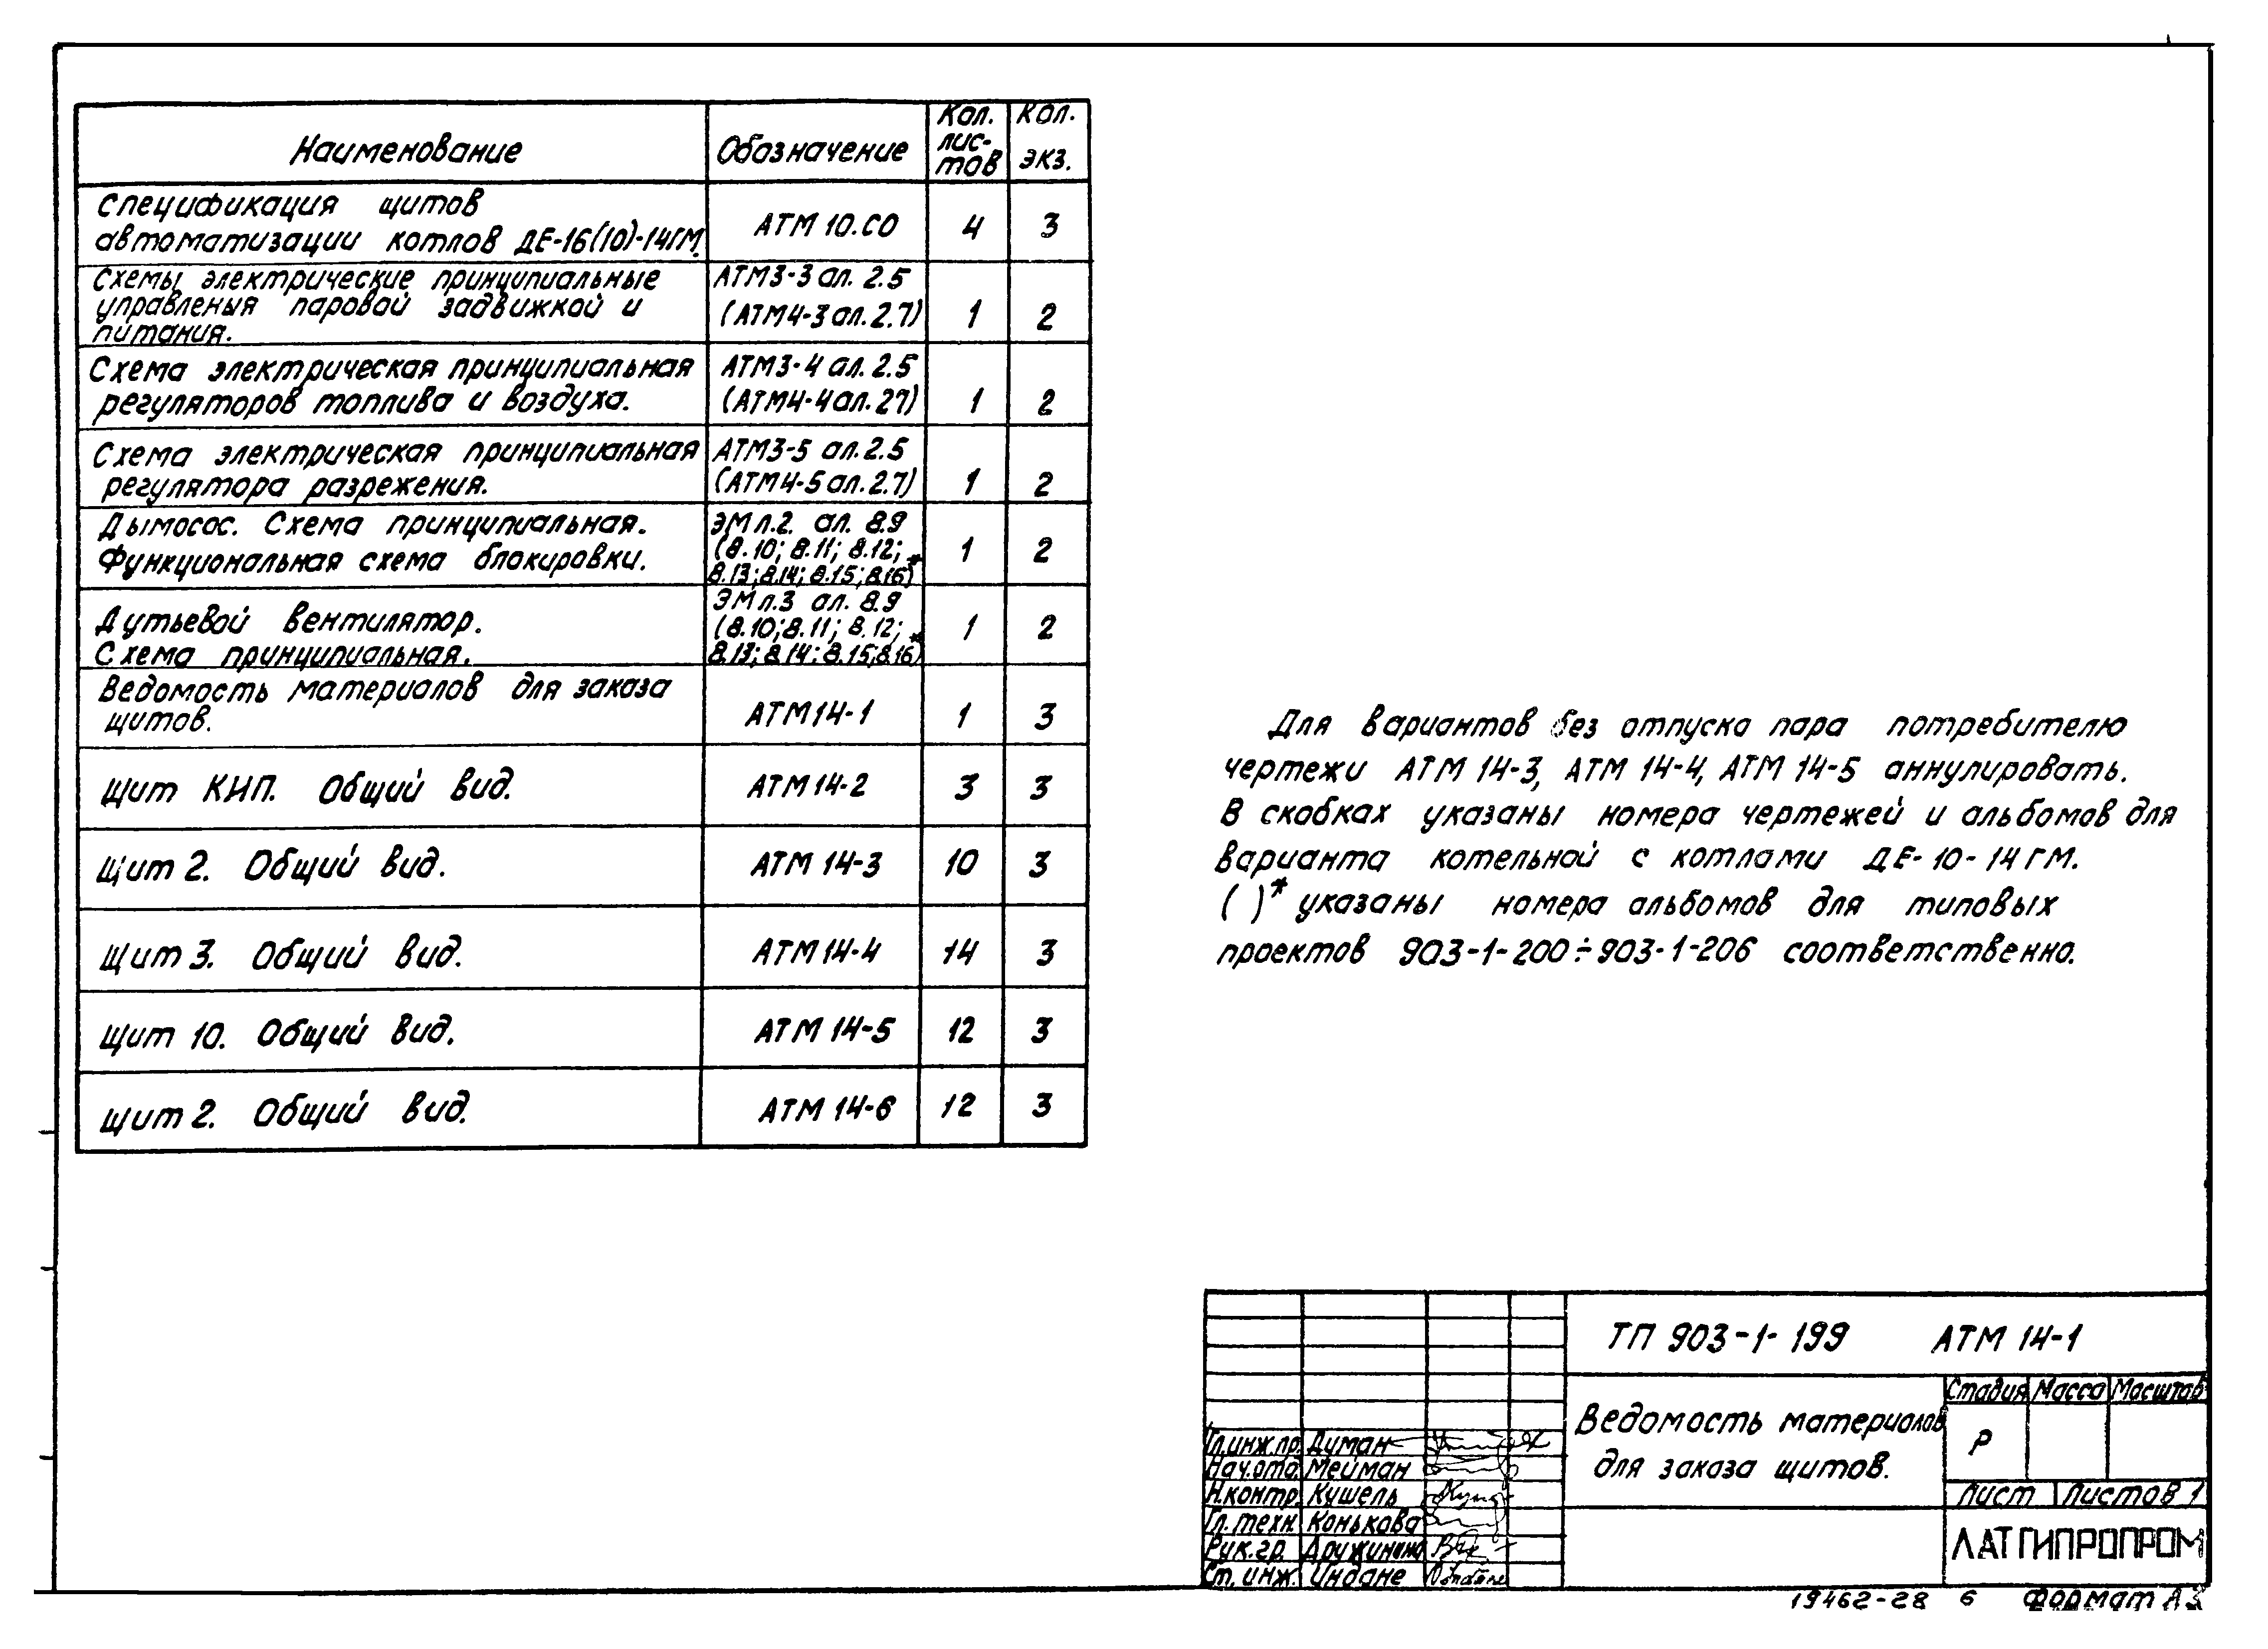 Наименование
Обозначение
Кол. лис- тов
Кол. экз.
Спецификация щитов
автоматизации котлов ДЕ-16(10)-14ГМ.
АТМ 10.СО
4
3
Схемы электрические принципиальные
управления паровой задвижкой и
питания.
АТМ3-3 ал. 2.5
(АТМ4-3 ал. 2.7)
1
2
Схема электрическая принципиальная
регуляторов топлива и воздуха.
АТМ3-4 ал. 2.5
(АТМ4-4 ал. 27)
1
2
Схема электрическая принципиальная
регулятора разрежения.
АТМ3-5 ал. 2.5
(АТМ4-5 ал. 2.7)
1
2
Дымосос. Схема принципиальная.
Функциональная схема блокировки.
ЭМ л.2. ал. 8.9
(8.10; 8.11; 8.12;
8.13; 8.14; 8.15; 8.16)*
1
2
Дутьевой вентилятор.
Схема принципиальная.
ЭМ л.3 ал. 8.9
(8.10; 8.11; 8.12;
8.13; 8.14; 8.15; 8.16)*
1
2
Ведомость материалов для заказа
щитов.
АТМ14-1
1
3
Щит КИП. Общий вид.
АТМ 14-2
3
3
Щит 2. Общий вид.
АТМ 14-3
10
3
Щит 3. Общий вид.
АТМ 14-4
14
3
Щит 10. Общий вид.
АТМ 14-5
12
3
Щит 2. Общий вид.
АТМ 14-6
12
3
Для вариантов без отпуска пара потребителю
чертежи АТМ 14-3, АТМ 14-4, АТМ 14-5 аннулировать.
В скобках указаны номера чертежей и альбомов для
варианта котельной с котлами ДЕ-10-14ГМ.
( )* указаны номера альбомов для типовых
проектов 903-1-200÷903-1-206 соответственно.
ТП 903-1-199 АТМ 14-1
Ведомость материалов
для заказа щитов.
Стадия Масса Масштаб
Р
Лист Листов 1
ЛАТГИПРОПРОМ
Гл.инж.пр. Думан
Нач.отд. Мейман
Н.контр. Кушель
Гл.техн. Конькова
Рук.гр. Дружинина
Ст. инж. Индане
19462-28 6 Формат А3